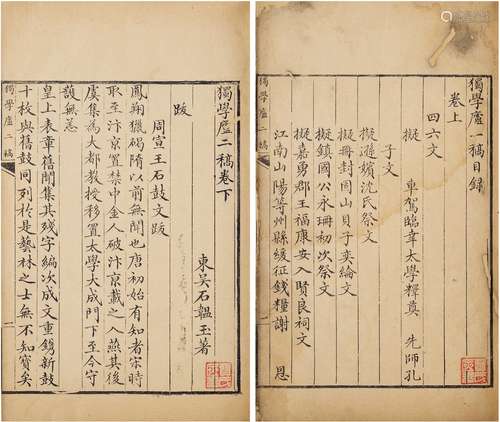 獨學廬一稿目錄
卷上
四六文
擬 車駕臨幸太學釋奠 先師孔
子文
擬遜嬪沈氏祭文
擬冊封固山貝子奕綸文
擬鎮國公永珊初次祭文
擬嘉勇郡王福康安入賢良祠文
江南山陽等州縣緩征錢糧謝 恩
獨學廬二稿
一
獨學廬二稿卷下
東吳石韞玉著
跋
周宣王石鼓文跋
鳳翔獵碣隋以前無聞也唐初始有知者宋時
取至汴京置禁中金人破汴京載之入燕其後
虞集為大都教授移置太學大成門下至今守
護無恙
皇上表章舊聞集其殘字編次成文重鐫新鼓
十枚與舊鼓同列於是藝林之士無不知寶矣
獨學廬二稿
一